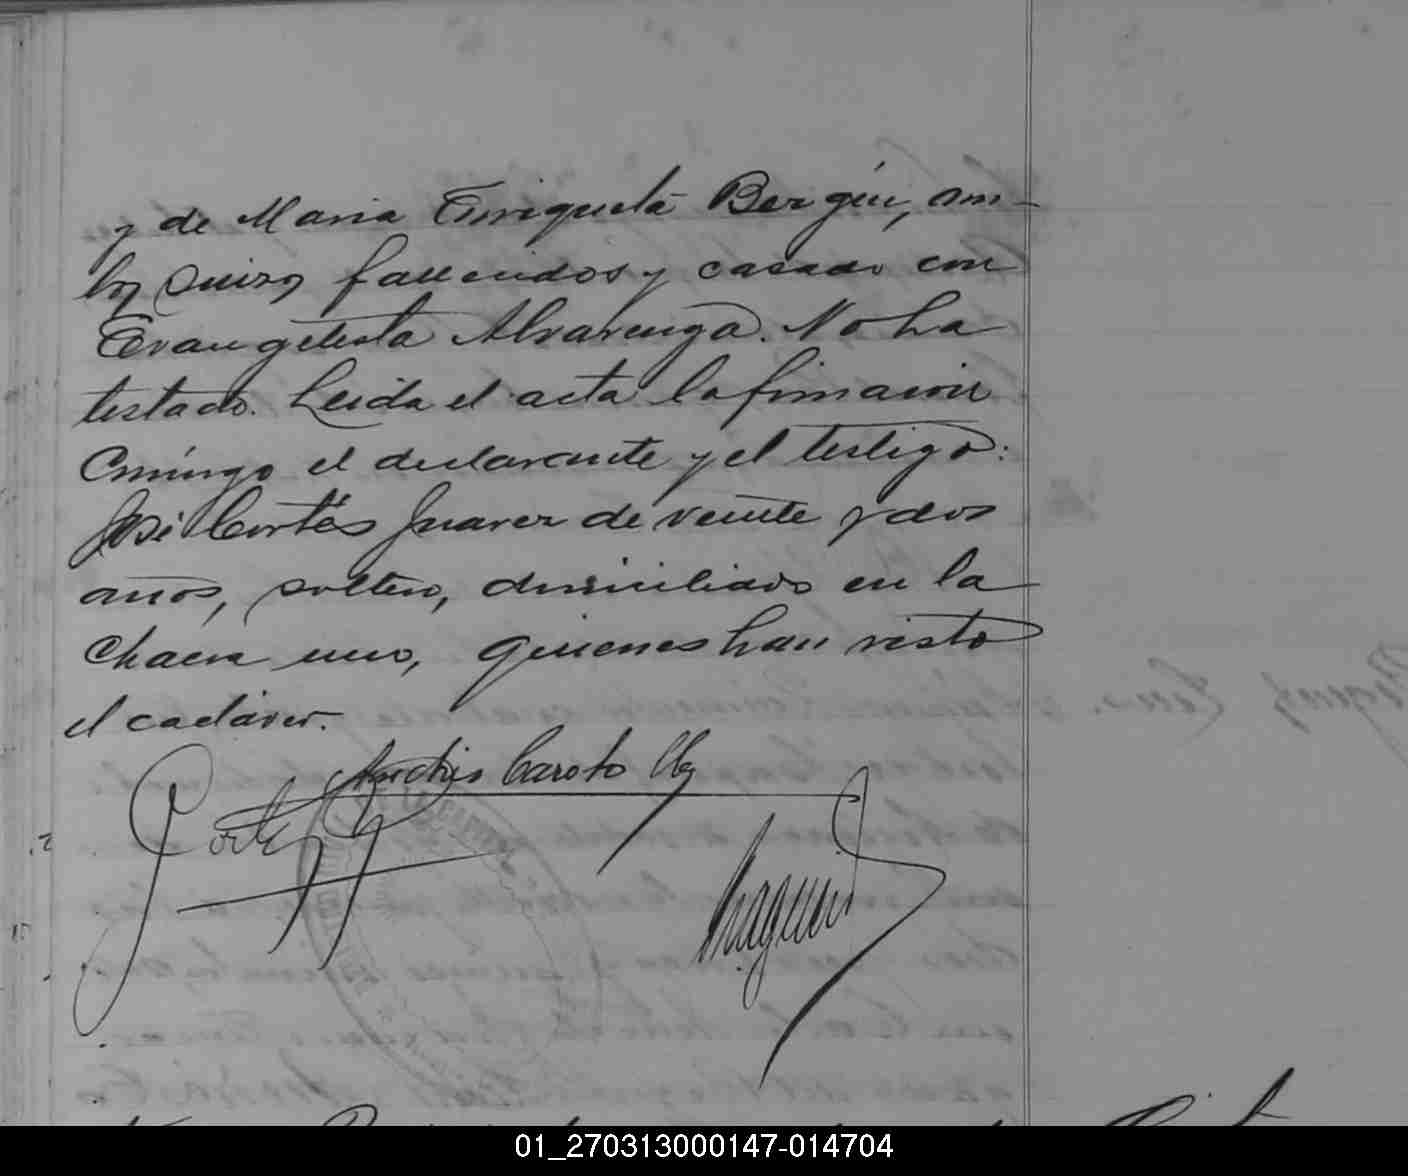 y de Maria Enriqueta Bergún, am-
bos suizos fallecidos y casado con
Evangelista Alvarenga. No ha
testado. Leida el acta la firmaron
conmigo el declarante y el testigo:
José Cortés Juarez de veinte y dos
años, soltero, domiciliado en la
Chacra uno, quienes han visto
el cadáver.
Andrés Caroto
Cortés
01_270313000147-014704